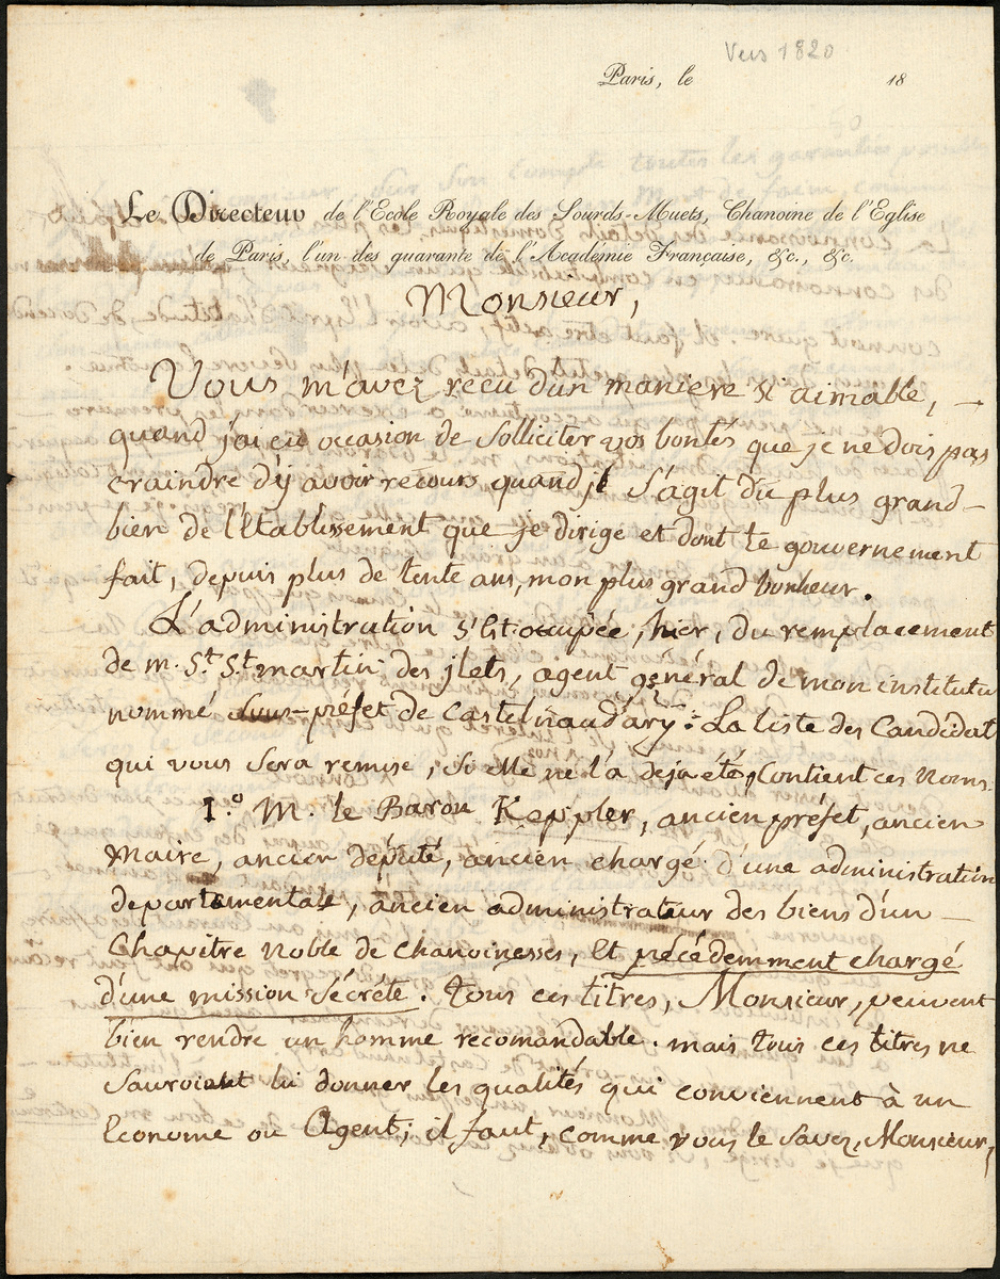 Vers 1820
Paris, le 18
50
Le Directeur de l'Ecole Royale des Sourds-Muets, Chanoine de l'Eglise
de Paris, l'un des quarante de l'Académie Française, &c., &c.
Monsieur,
Vous m'avez recu d'un maniere si aimable, —
quand j'ai eu occasion de solliciter vos bontés que je ne dois pas
craindre d'y avoir recours quand il s'agit du plus grand —
bien de l'Etablissement que je dirige et dont le gouvernement
fait, depuis plus de tente ans, mon plus grand bonheur.
L'administration s'est occupée, hier, du remplacement
de m. St. St. martin des jlets, agent général de mon institutu
nommé sous-préfet de Castelnaud'ary: La liste des Candidat
qui vous sera remise, si elle ne l'a deja été, Contient ces noms.
1.° M. le Baron Keppler, ancien préfet, ancien
Maire, ancien député, ancien chargé d'une administration
departementale, ancien administrateur des biens d'un —
Chapitre noble de chanoinesses, et précédemment chargé
d'une mission secréte. Tous ces titres, Monsieur, peuvent
bien rendre un homme recomandable. mais tous ces titres ne
sauroient lui donner les qualités qui conviennent à un
Econome ou Agent; il faut, comme vous le savez, Monsieur,